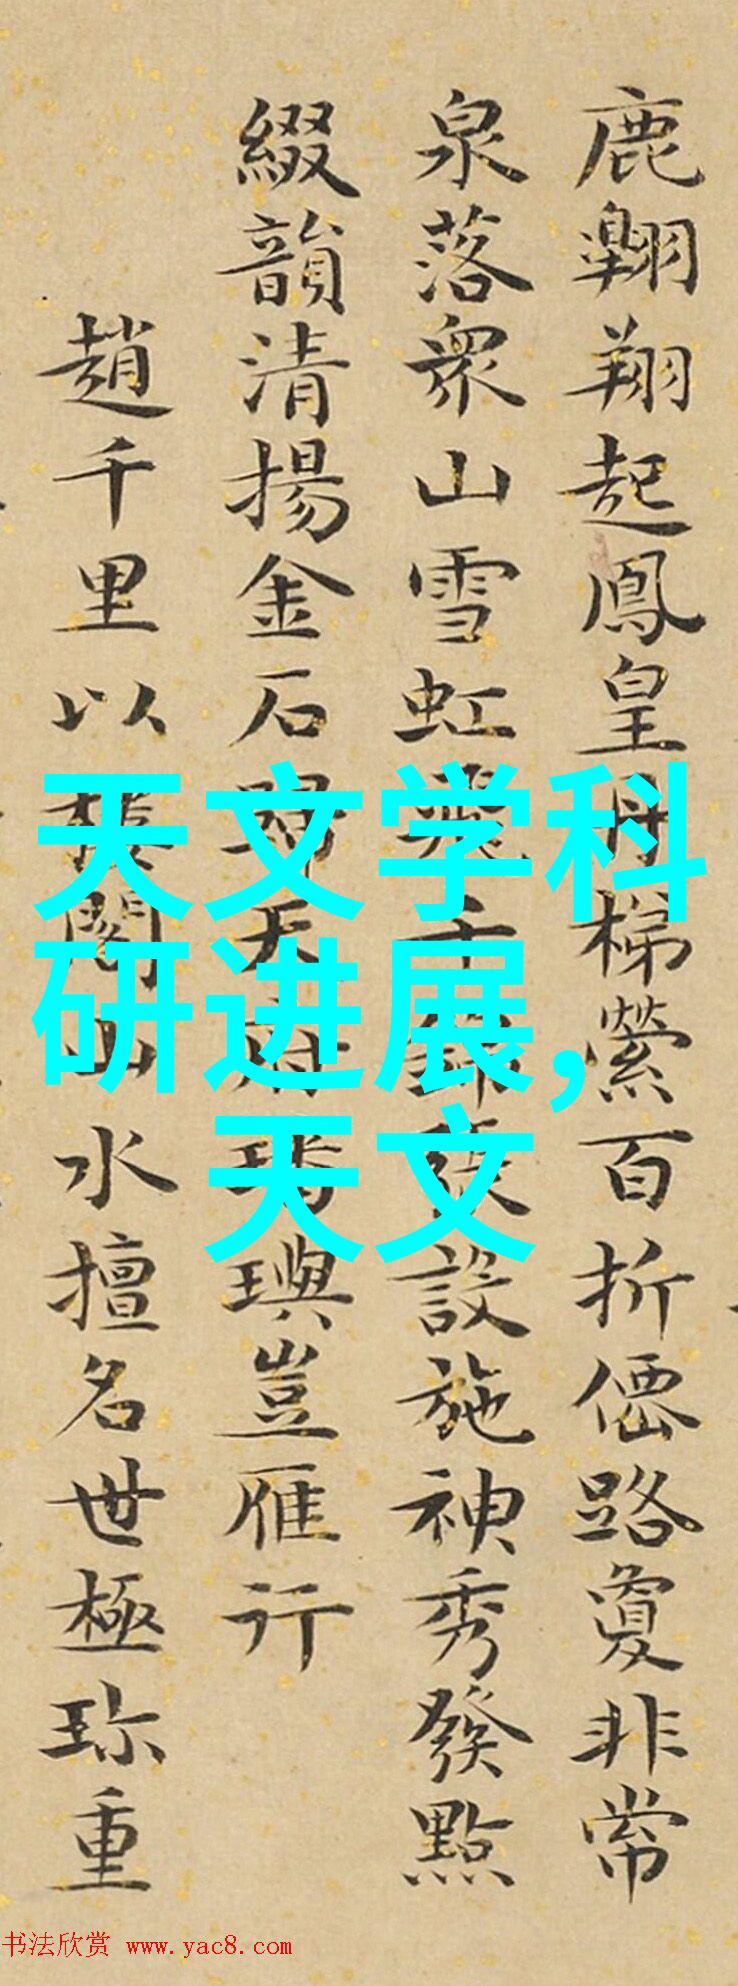 鹿翱翔起鳳皇丹梯縈百折僊路敻非常
泉落衆山雪虹飛千錦張設施神秀發點
綴韻清揚金石歸天府璠璵豈雁行
趙千里以樓閣山水擅名世極珎重
天文学科
研进展,
天文
书法欣赏 www.yac8.com